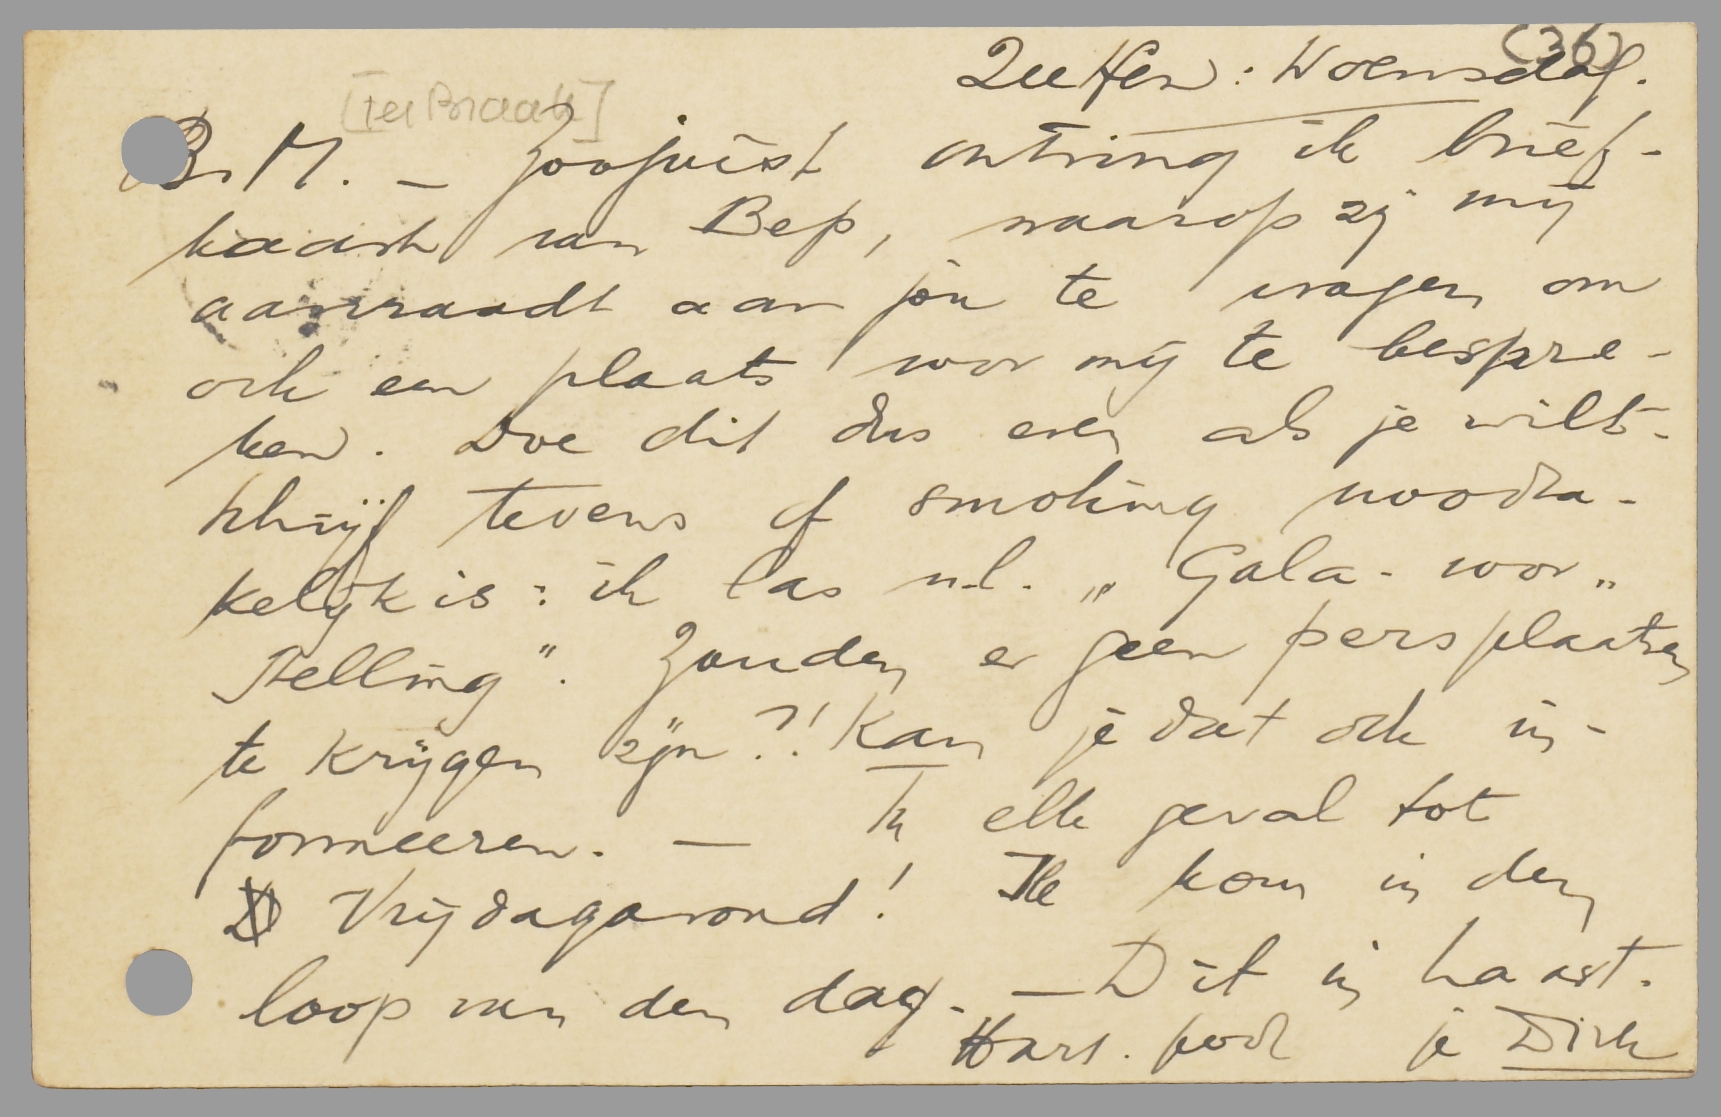 (36)
Zutfen: Woensdag.
[ter Braak]
B. M. — Zoojuist ontving ik brief-
kaart van Bep, waarop zij mij
aanraadt aan jou te vragen om
ook een plaats voor mij te bespre-
ken. Doe dit dus even als je wilt.
Schrijf tevens of smoking noodza-
kelijk is: ik las n.l. „Gala-voor„
stelling". Zouden er geen persplaatsen
te krijgen zijn?! Kan je dat ook in-
formeeren. — In elk geval tot
Vrijdagavond! Ik kom in den
loop van den dag. — Dit in haast.
Hart. good je Dirk